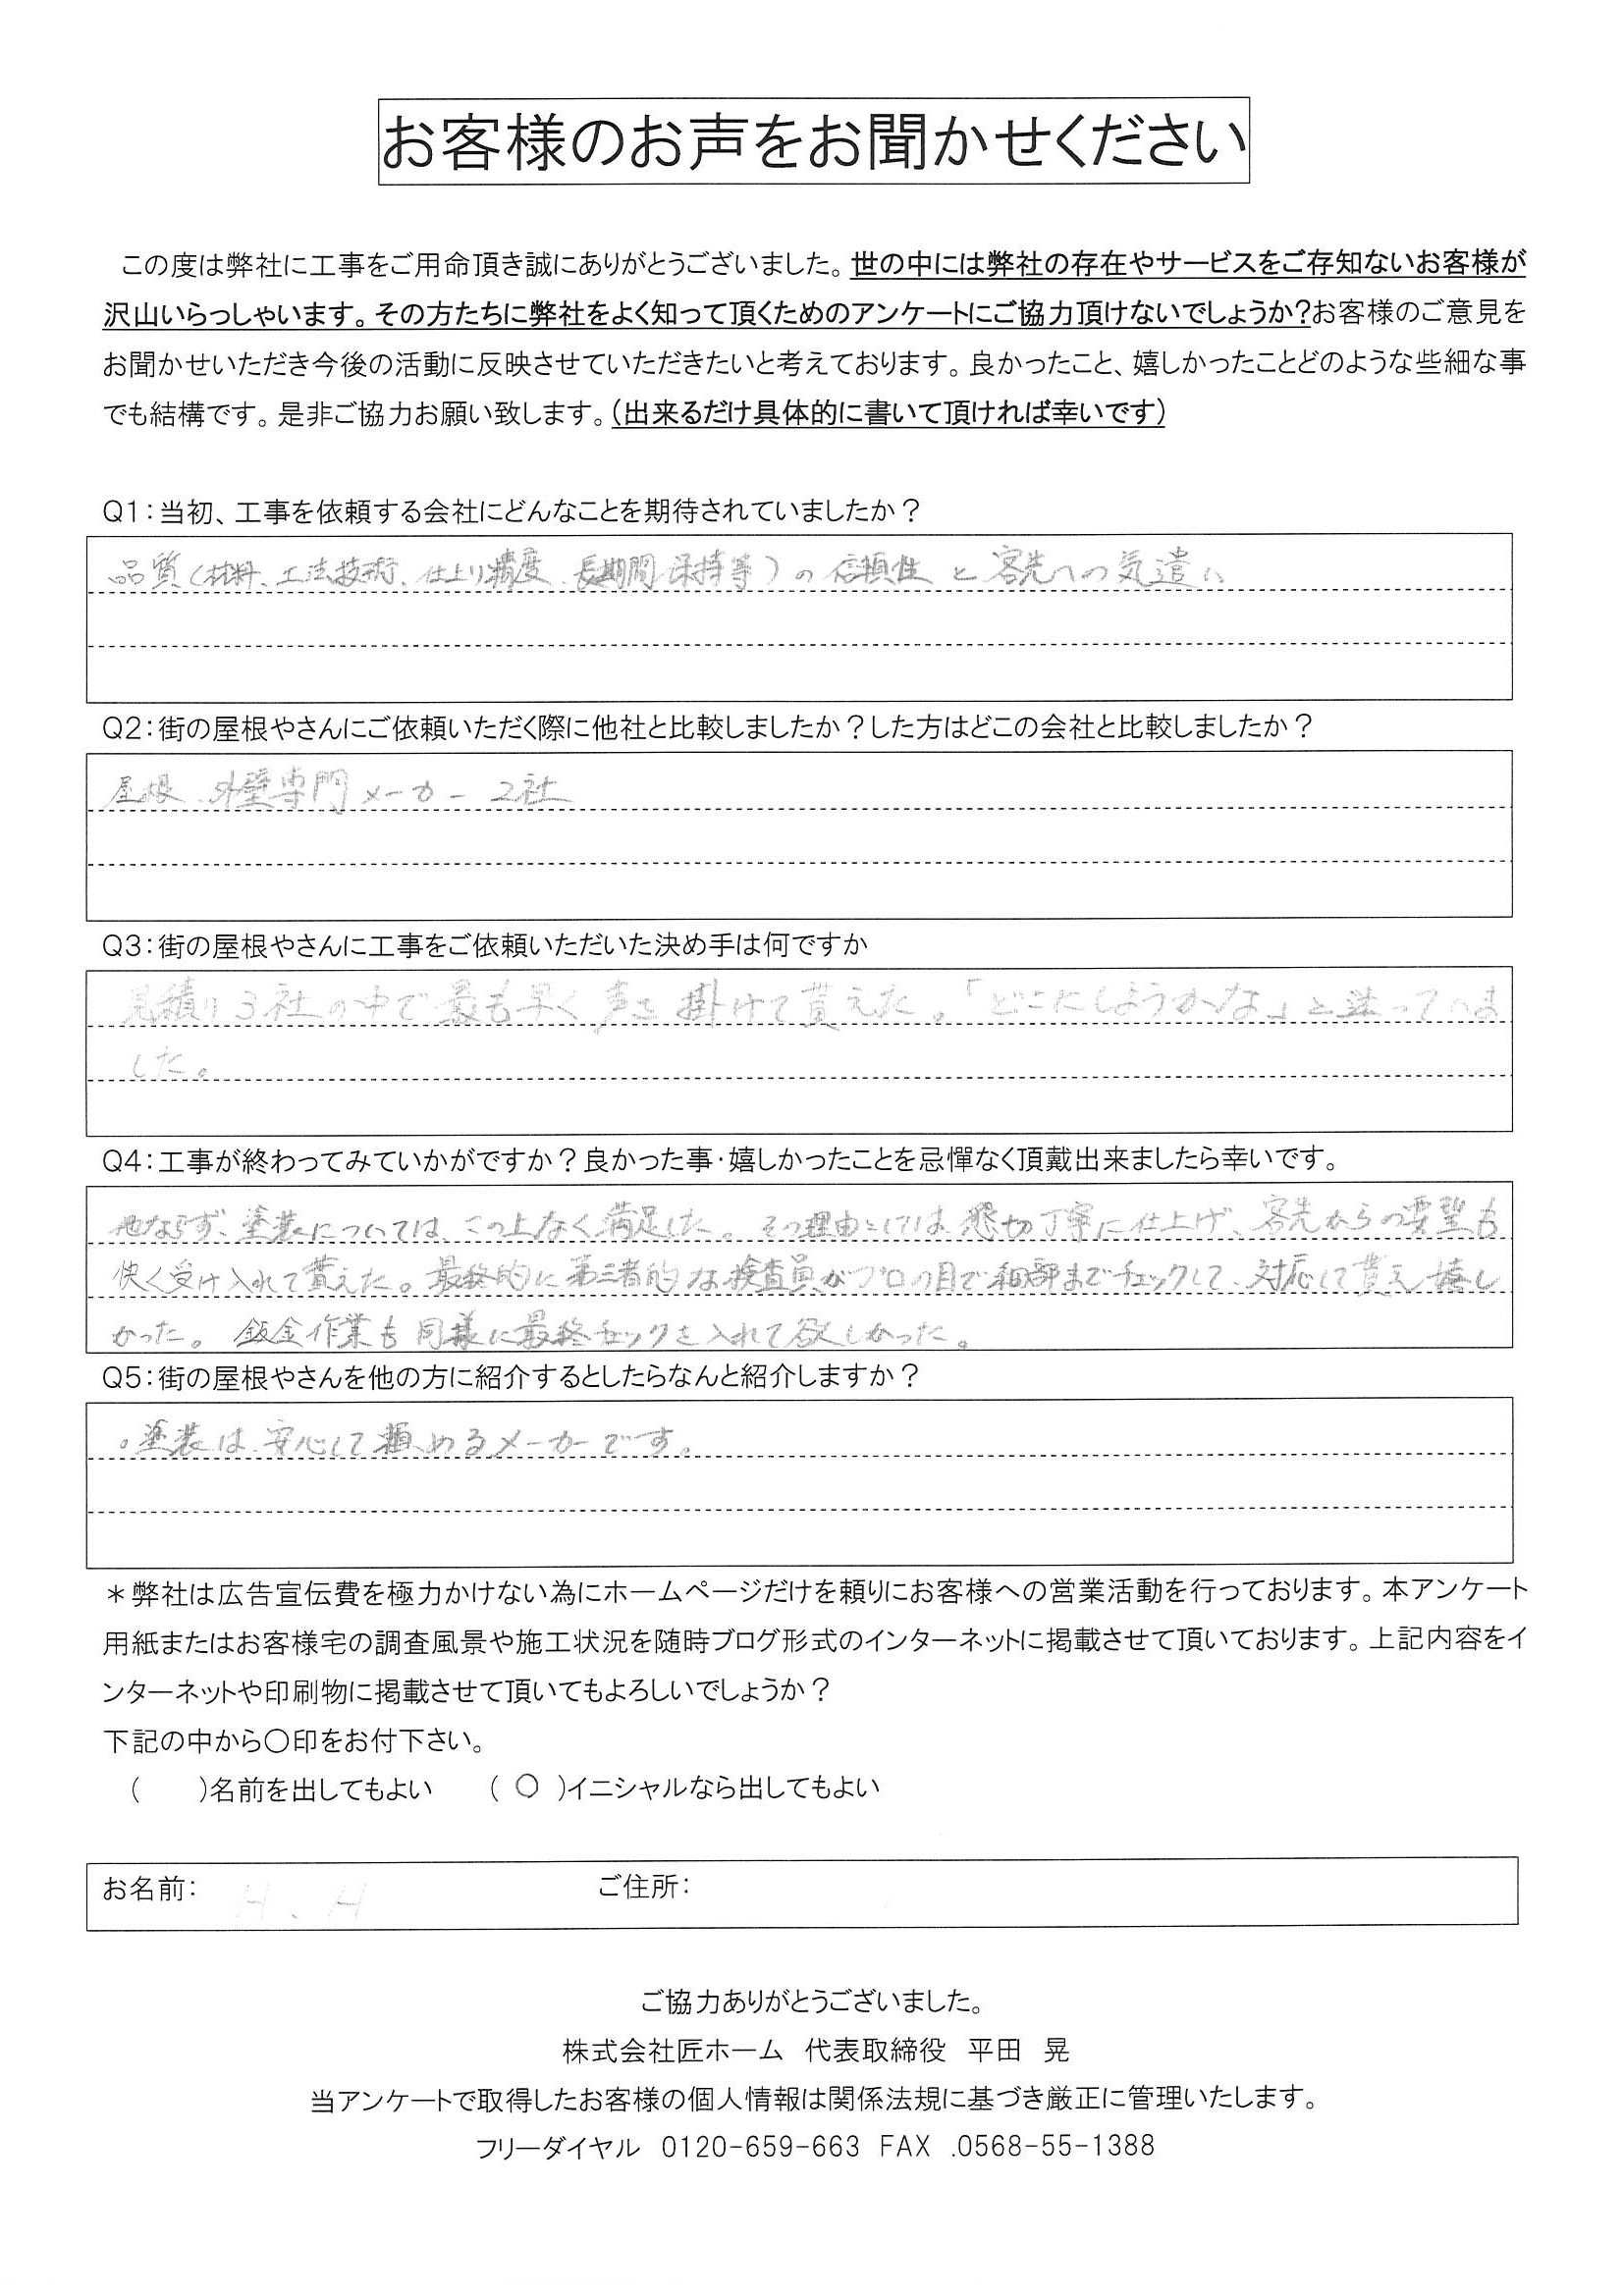 お客様のお声をお聞かせください
この度は弊社に工事をご用命頂き誠にありがとうございました。世の中には弊社の存在やサービスをご存知ないお客様が
沢山いらっしゃいます。その方たちに弊社をよく知って頂くためのアンケートにご協力頂けないでしょうか?お客様のご意見を
お聞かせいただき今後の活動に反映させていただきたいと考えております。良かったこと、嬉しかったことどのような些細な事
でも結構です。是非ご協力お願い致します。(出来るだけ具体的に書いて頂ければ幸いです)
Q1:当初、工事を依頼する会社にどんなことを期待されていましたか?
品質(材料、工法技術、仕上り精度、長期間保持等)の信頼性と客先への気遣い
Q2:街の屋根やさんにご依頼いただく際に他社と比較しましたか?した方はどこの会社と比較しましたか?
屋根、外壁専門メーカー 2社
Q3:街の屋根やさんに工事をご依頼いただいた決め手は何ですか
見積り3社の中で最も早く声を掛けて貰えた。「どこにしようかな」と迷っていま
した。
Q4:工事が終わってみていかがですか?良かった事・嬉しかったことを忌憚なく頂戴出来ましたら幸いです。
ならず、塗装については、この上なく満足した。その理由としては、懇切丁寧に仕上げ、客先からの要望も
快く受け入れて貰えた。最終的に第三者的な検査員がプロの目で細部までチェックして、対応して貰え嬉し
かった。鈑金作業も同様に最終チェックを入れて欲しかった。
Q5:街の屋根やさんを他の方に紹介するとしたらなんと紹介しますか?
。塗装は、安心して頼めるメーカーです。
*弊社は広告宣伝費を極力かけない為にホームページだけを頼りにお客様への営業活動を行っております。本アンケート
用紙またはお客様宅の調査風景や施工状況を随時ブログ形式のインターネットに掲載させて頂いております。上記内容をイ
ンターネットや印刷物に掲載させて頂いてもよろしいでしょうか?
下記の中から○印をお付下さい。
( )名前を出してもよい ( ○ )イニシャルなら出してもよい
お名前: H、H ご住所:
ご協力ありがとうございました。
株式会社匠ホーム 代表取締役 平田 晃
当アンケートで取得したお客様の個人情報は関係法規に基づき厳正に管理いたします。
フリーダイヤル 0120-659-663 FAX .0568-55-1388